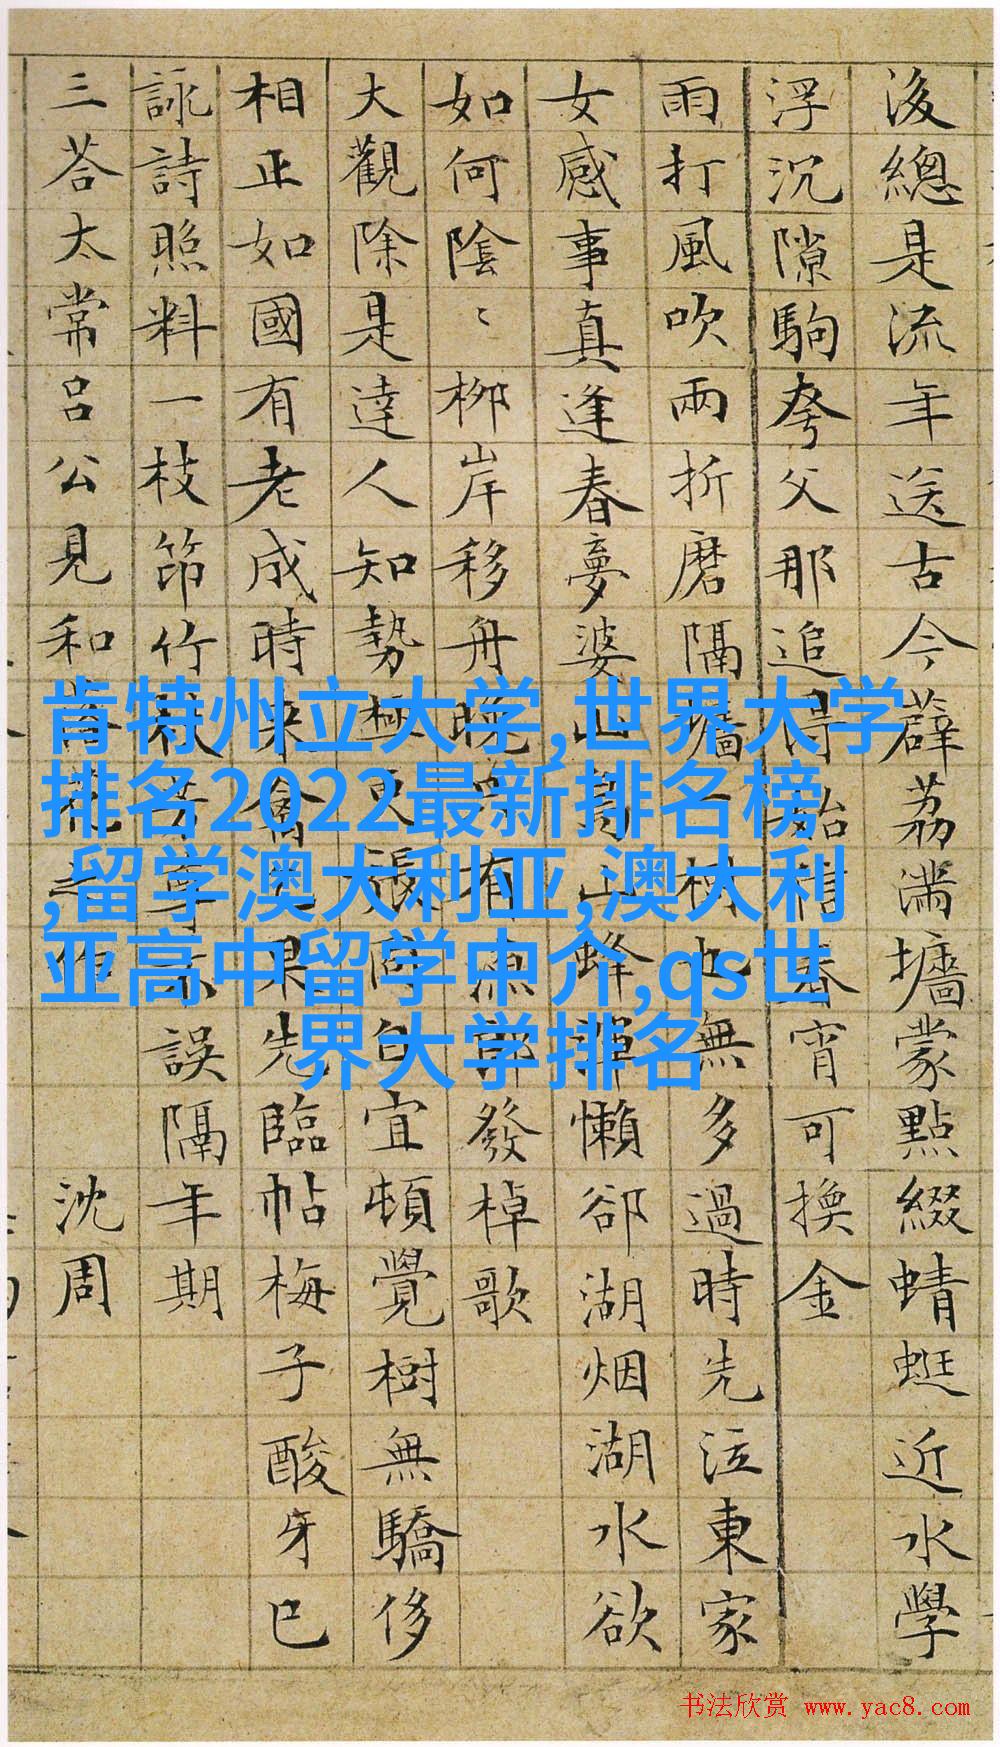 後總是流年送古今薜荔滿墻蒙點綴蜻蜓近水學
浮沉隙駒夸父那追得始信春宵可換金
雨打風吹兩折磨隔墻也無多過時先泣東家
女感事真逢春夢婆山山蜂懶卻湖烟湖水欲
如何陰〻柳岸移舟晚有漁郎發棹歌
大觀除是達人知勢極更張自宜頓覺樹無驕侈
相正如國有老成時來禽果先臨帖梅子酸牙已
詠詩照料一枝筇竹誤隔年期
三荅太常呂公見和之作 沈周
肯特州立大学,世界大学
排名2022最新排名榜
,留学澳大利亚,澳大利
亚高中留学中介,qs世
界大学排名
书法欣赏 www.yac8.com